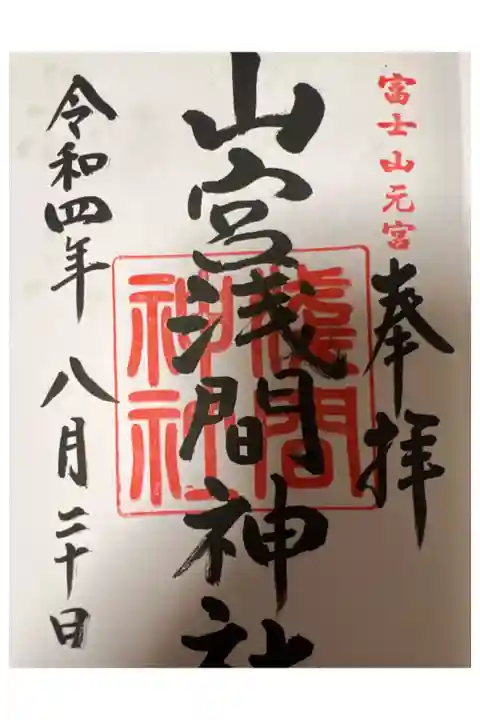 富士山元宮
奉拝
山宮浅間神社
淺間
神社
令和四年 八月二十日